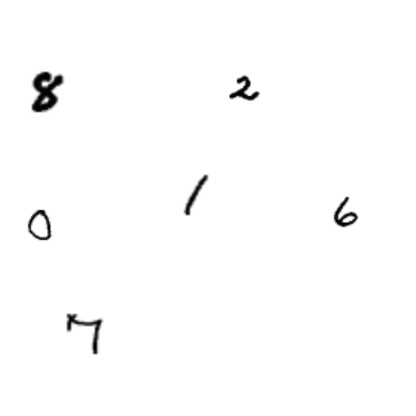 8 2
0 1 6
7